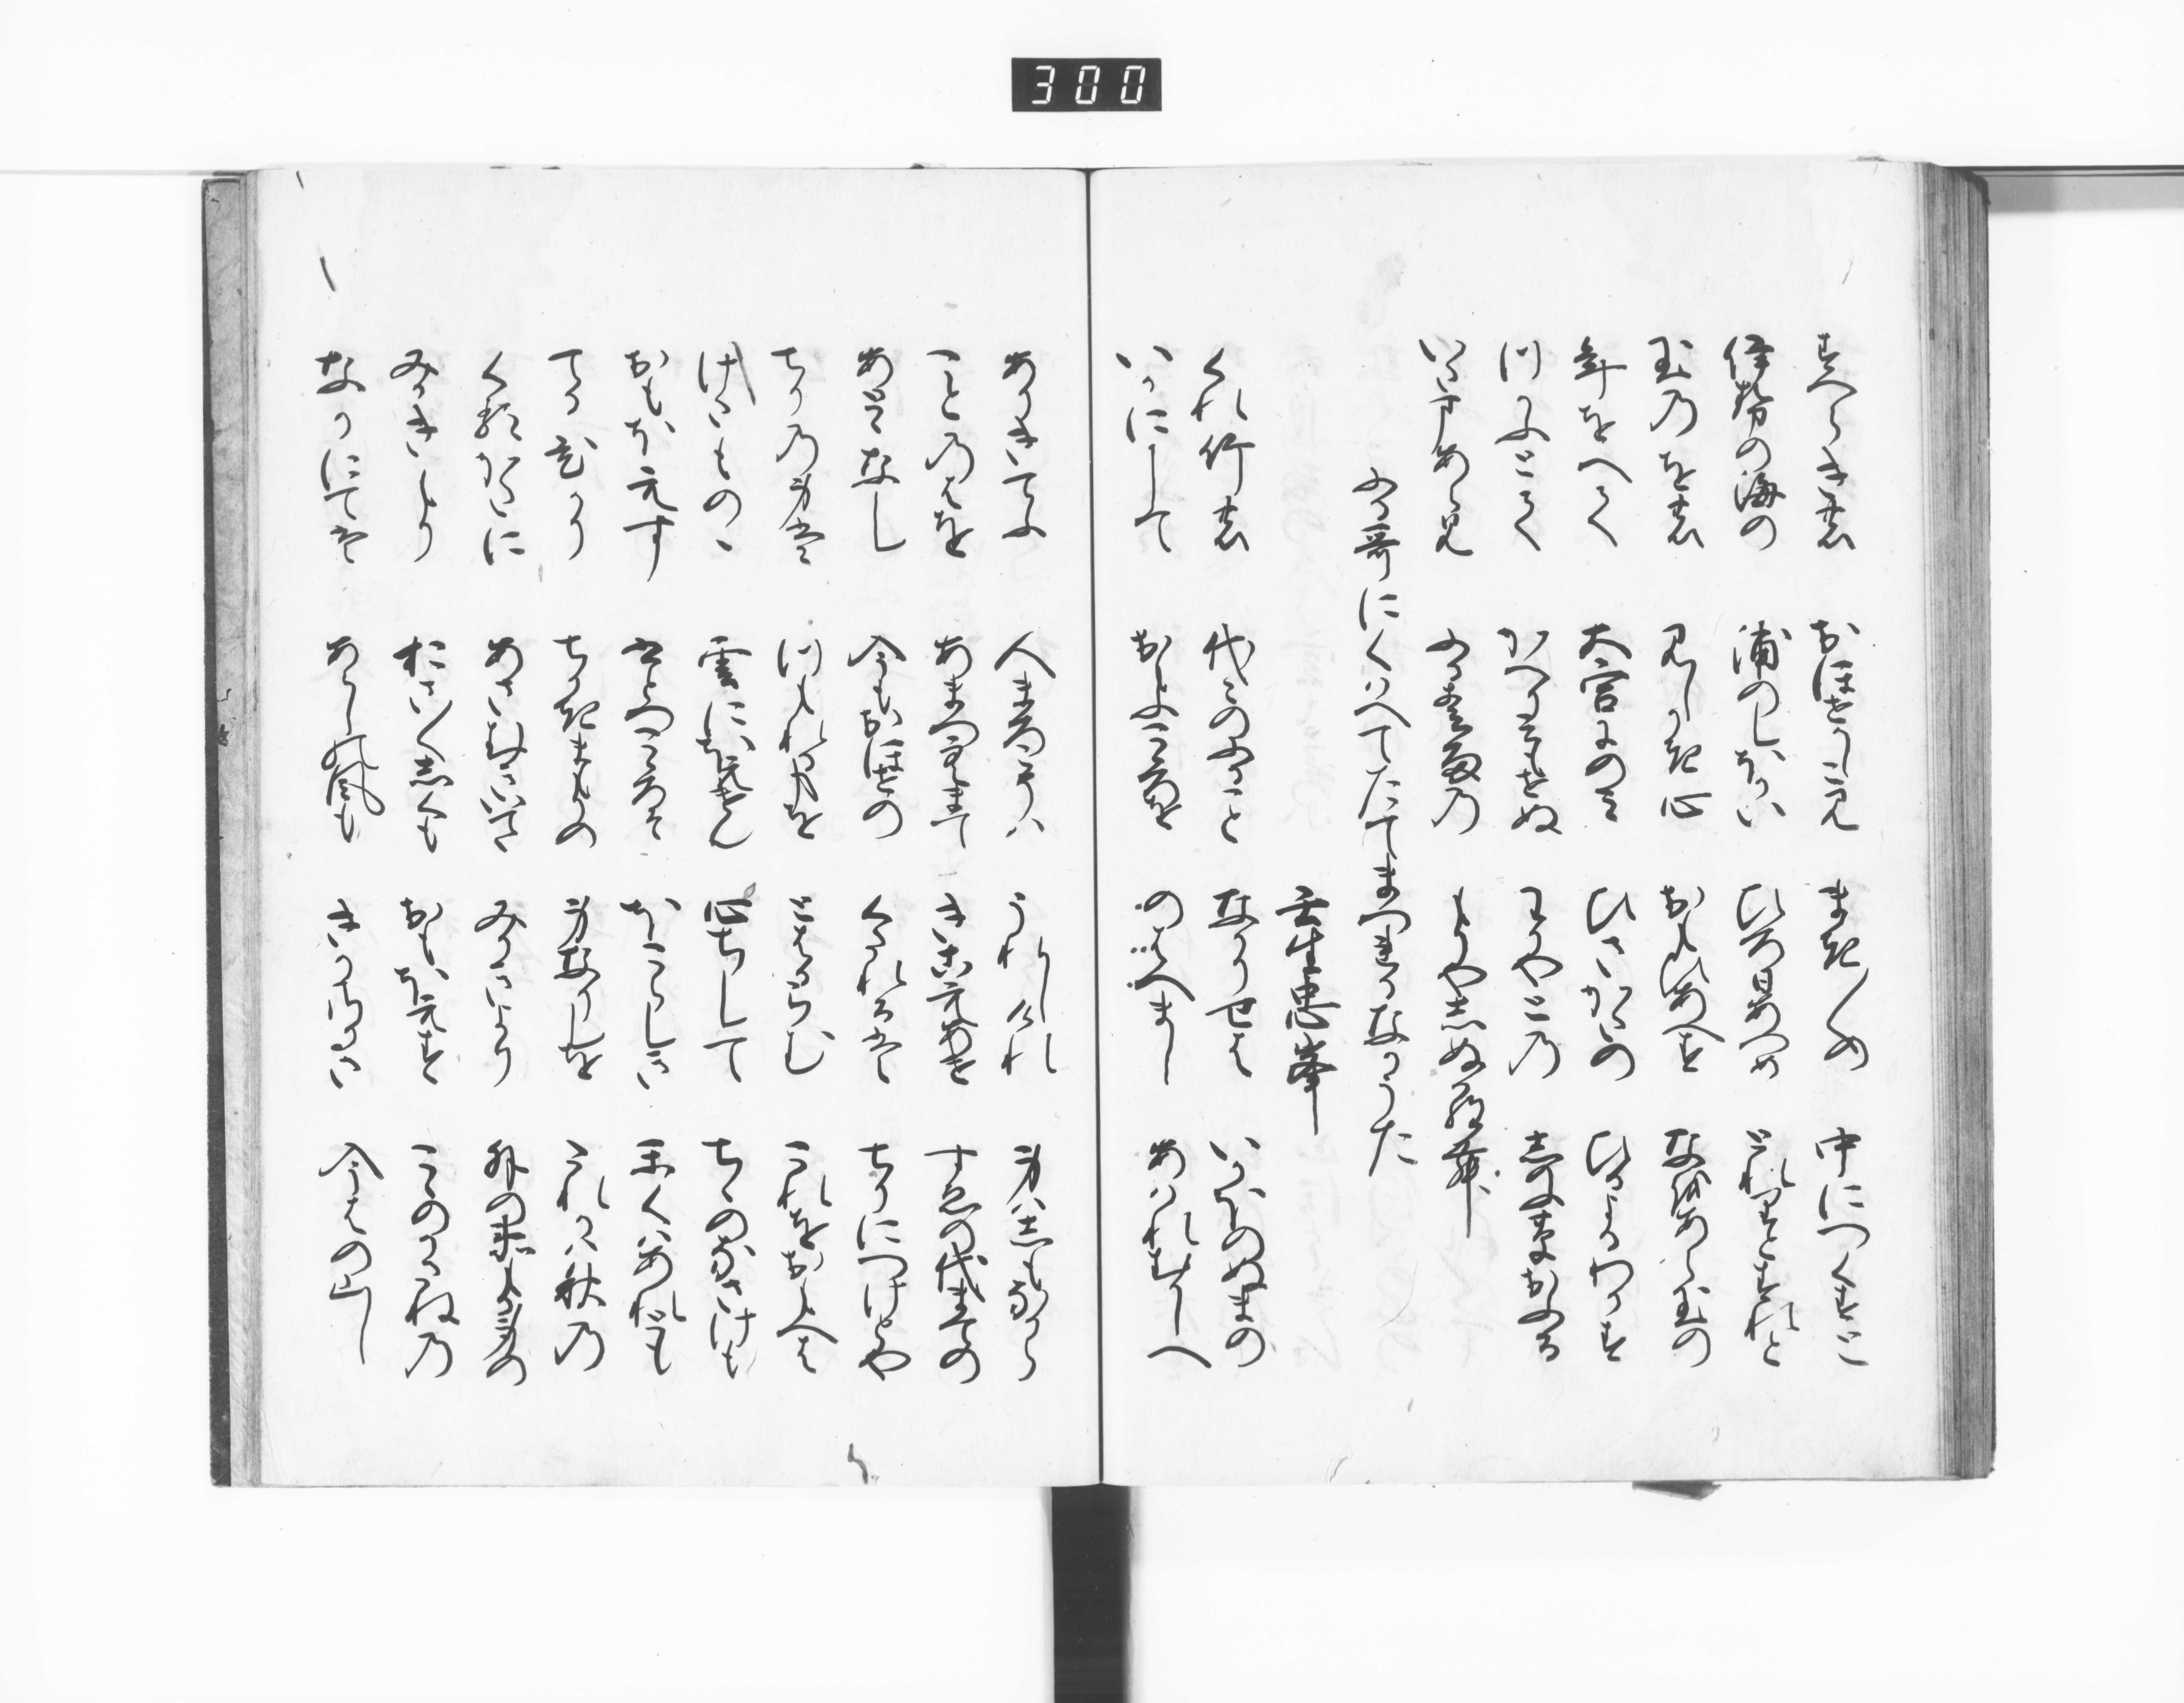 すへらきの　おほせかしこみ　まき／＼の　中につくすと
伊勢の海の　浦のしほかひ　ひろひあつめ　とれりとすれと
玉乃をの　みしかき心　おもひあへす　なほあら玉の
年をへて　大宮にのみ　ひさかたの　ひるよるわかす
つかふとて　かへりみもせぬ　わかやとの　しのふ草おふる
いたまあらみ　ふる春雨の　もりやしぬらん
ふる哥にくはへてたてまつれるなかうた
壬生忠岑
くれ竹の　代々のふること　なかりせは　いかほのぬまの
いかにして　おもふこゝろを　のはへまし　あはれむかしへ
ありきてふ　人まろこそハ　うれしけれ　身ハしもなから
ことのはを　あまつそらまて　きこえあけ　すゑの代まての
あとゝなし　今もおほせの　くたれるは　ちりにつけとや
ちりの身に　つもれる事を　とはるらむ　これをおもへは
けたものゝ　雲にほえけん　心ちして　ちゝのなさけも
おもほえす　ひとつこゝろそ　ほこらしき　かくはあれとも
てるひかり　ちかきまもりの　身なりしを　たれかは秋の
くるかたに　あさむきいてゝ　みかきより　外のへもる身の
みかきもり　おさ／＼しくも　おもほえす　こゝのかさねの
なかにては　あらしの風も　きかさりき　今はの山し